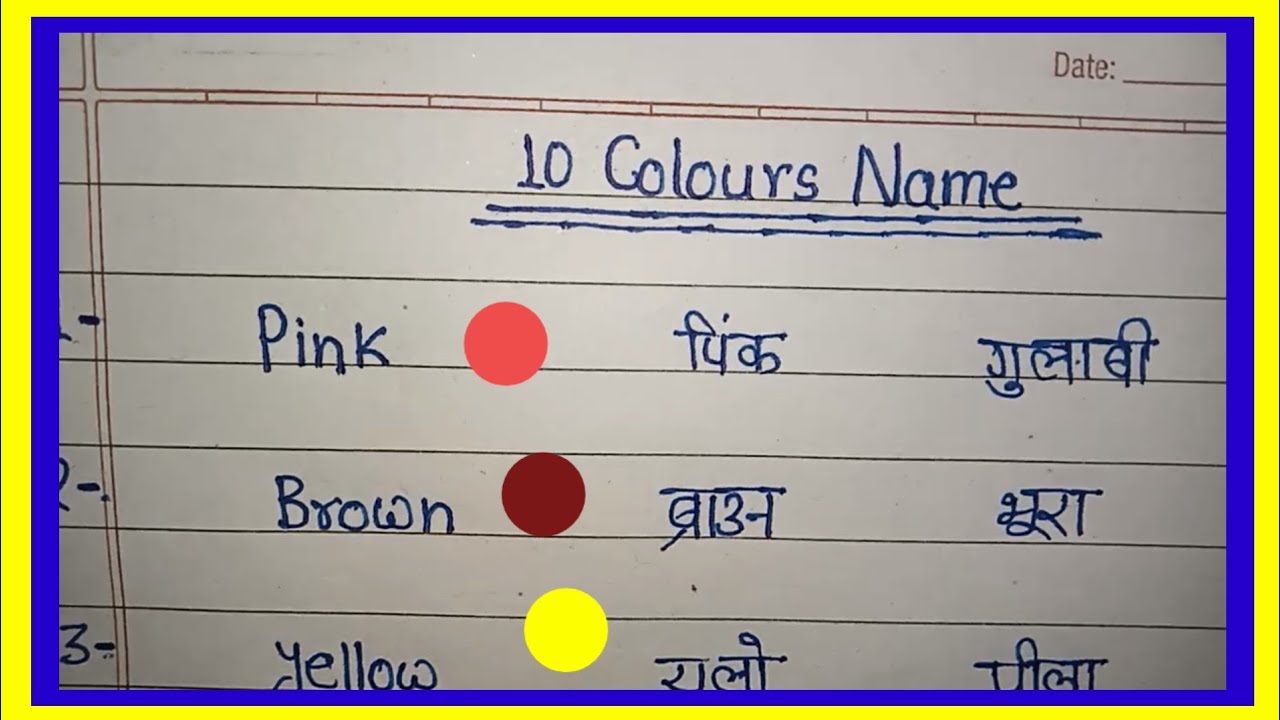 Date:
10 Colours Name
1- Pink पिंक गुलाबी
2- Brown ब्राउन भूरा
3- Yellow यलो पीला